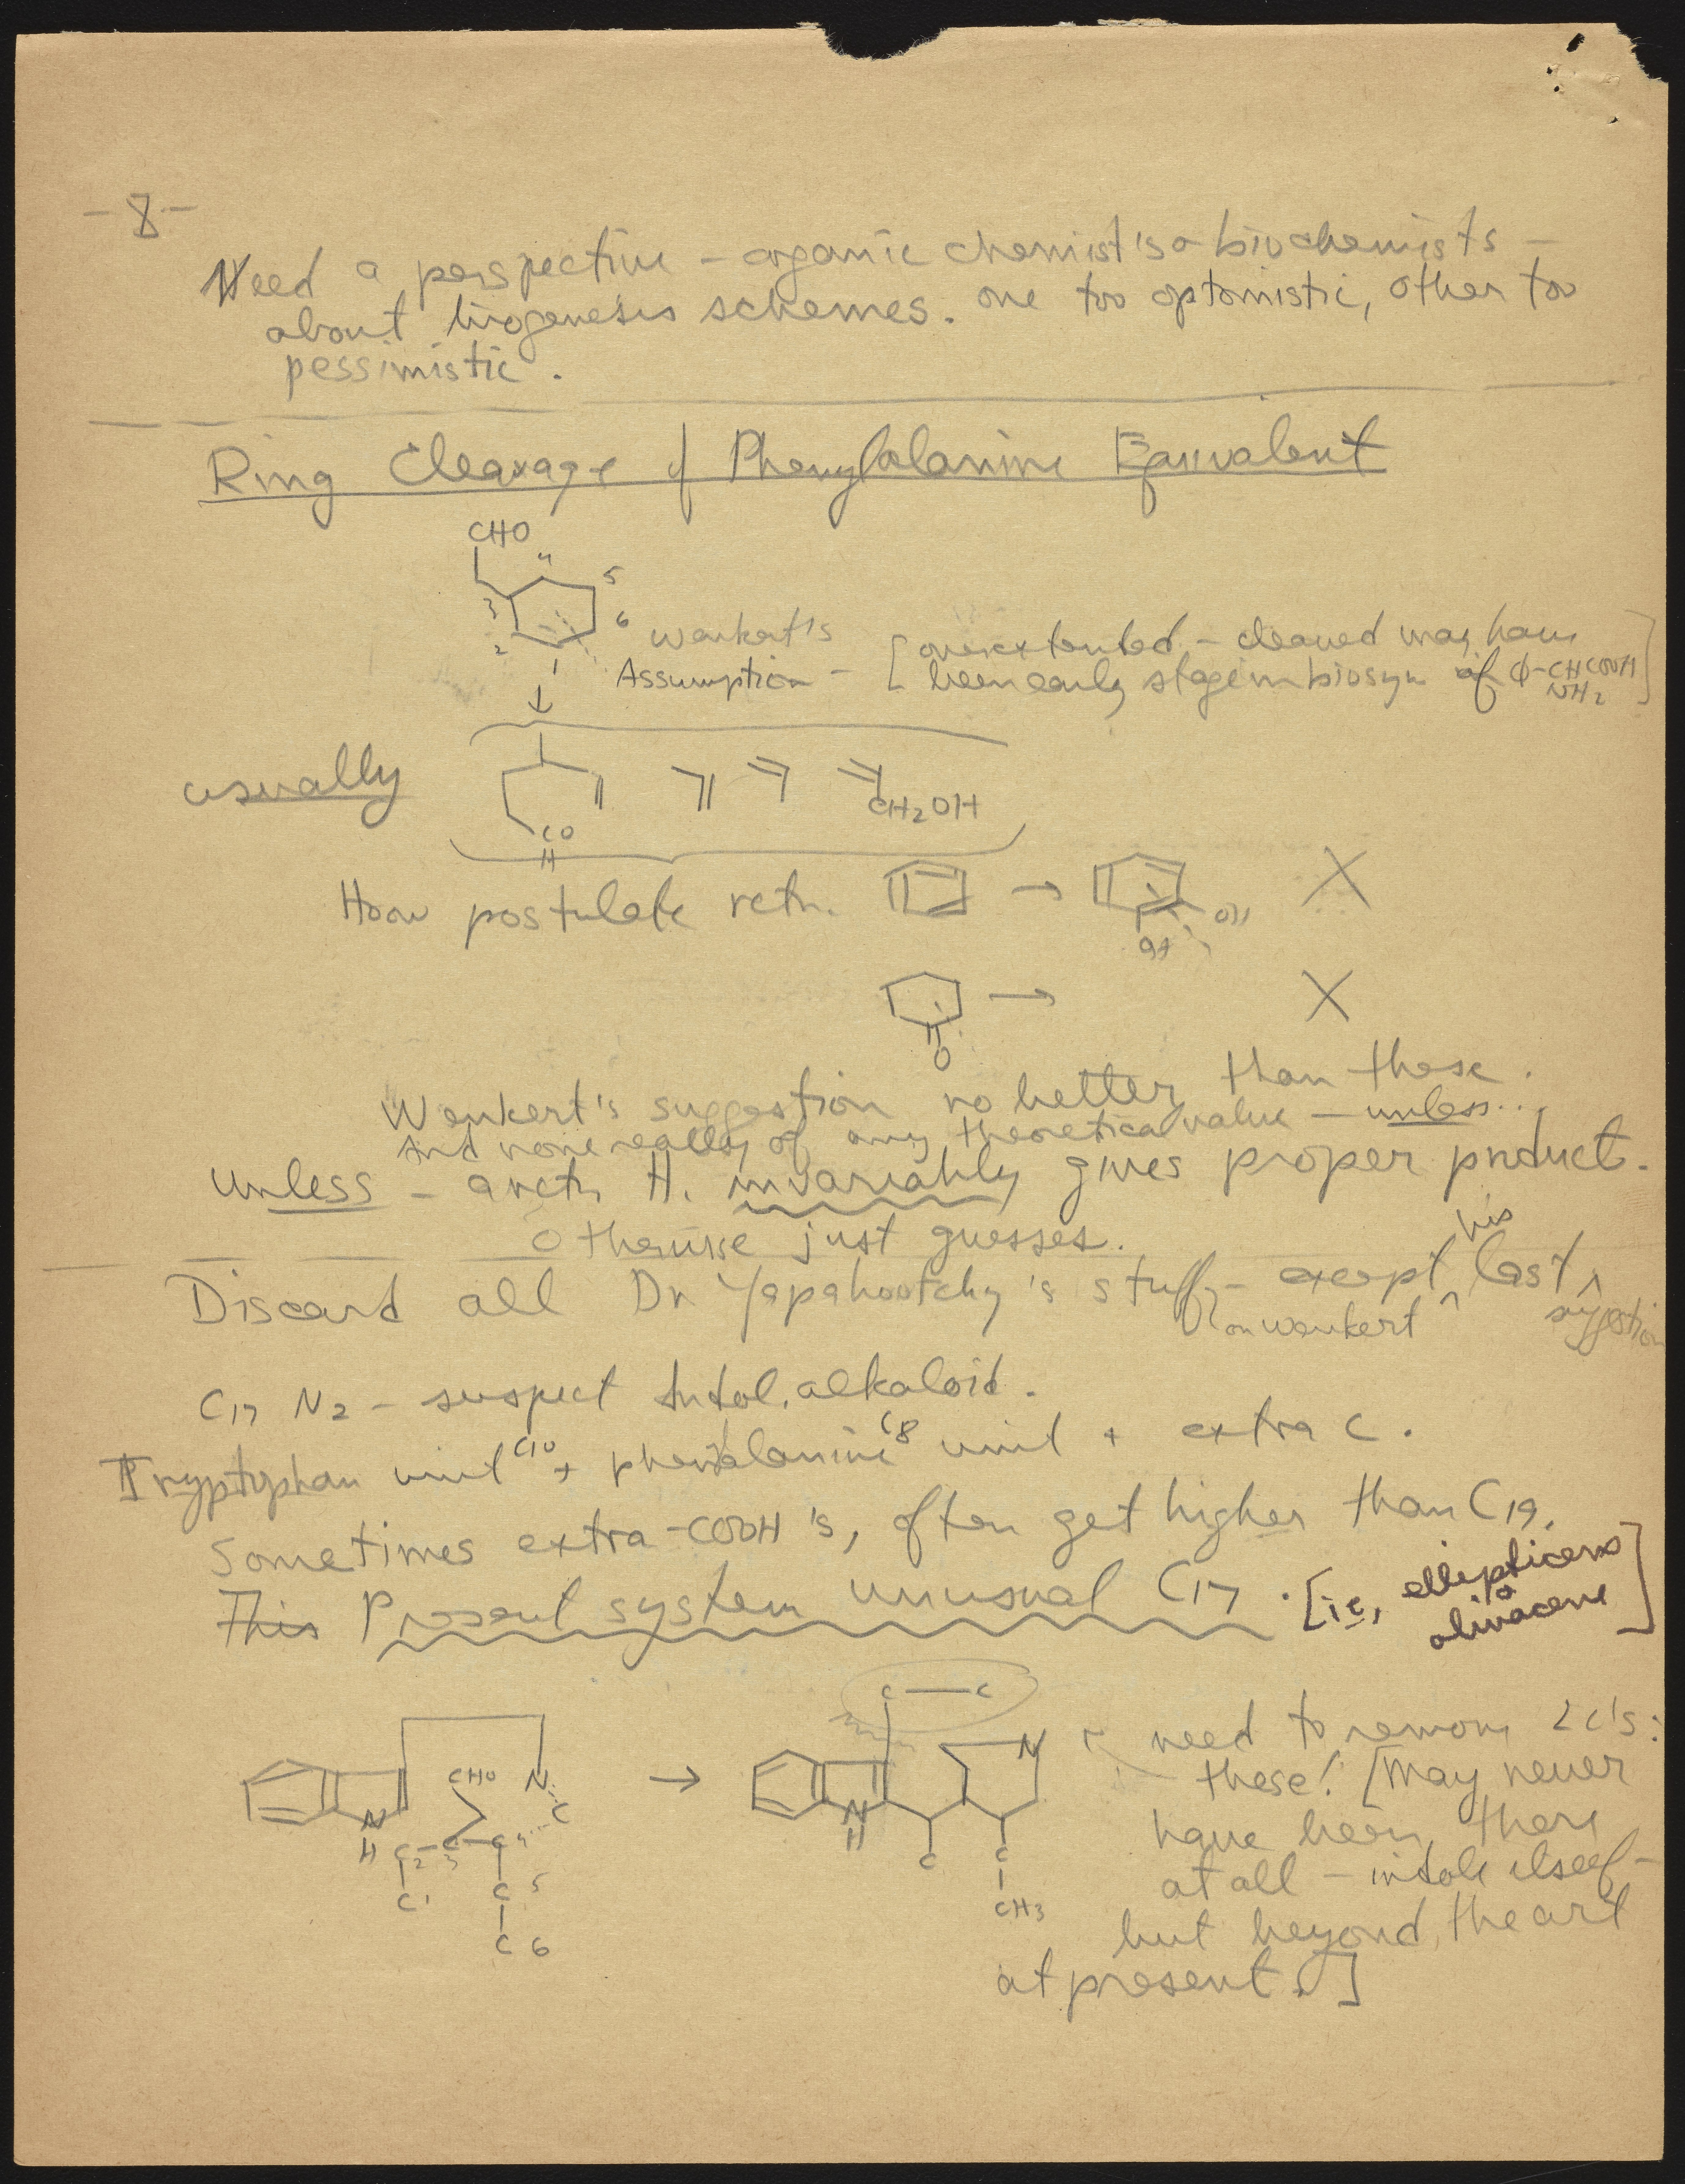 -8-
Need a perspective - organic chemist's & biochemists -
about biogenesis schemes. one too optomistic, other too
pessimistic.
Ring Cleavage of Phenylalanine Equivalent
CHO
4
5
3
6
2
1
Wenkert's
Assumption -
[overextended - cleaved may have
been early stage in biosyn of φ-CHCOOH]
NH2
usually
CO
H
CH2OH
How postulate rctn. → OH X
→ X
O
Wenkert's suggestion no better than these.
And none really of any theoretical value - unless...
Unless - a rctn H. invariably gives proper product.
Otherwise just guesses.
Discard all Dr Yapahootchy's stuff - except his last suggestion
on Wenkert
C17 N2 - suspect Indol. alkaloid.
Tryptyphan unit C10 + phenalanine C8 unit + extra C.
Sometimes extra -COOH's, often get higher than C19.
This Present system unusual C17. [ie, ellipticene
& olivacene]
C — C
CHO N → N
N C N
H C2 C3 C4 H C C
C1 C 5 CH3
C 6
need to remove 2 C's:
these! [May never
have been there
at all - indole itself -
but beyond the art
at present.]